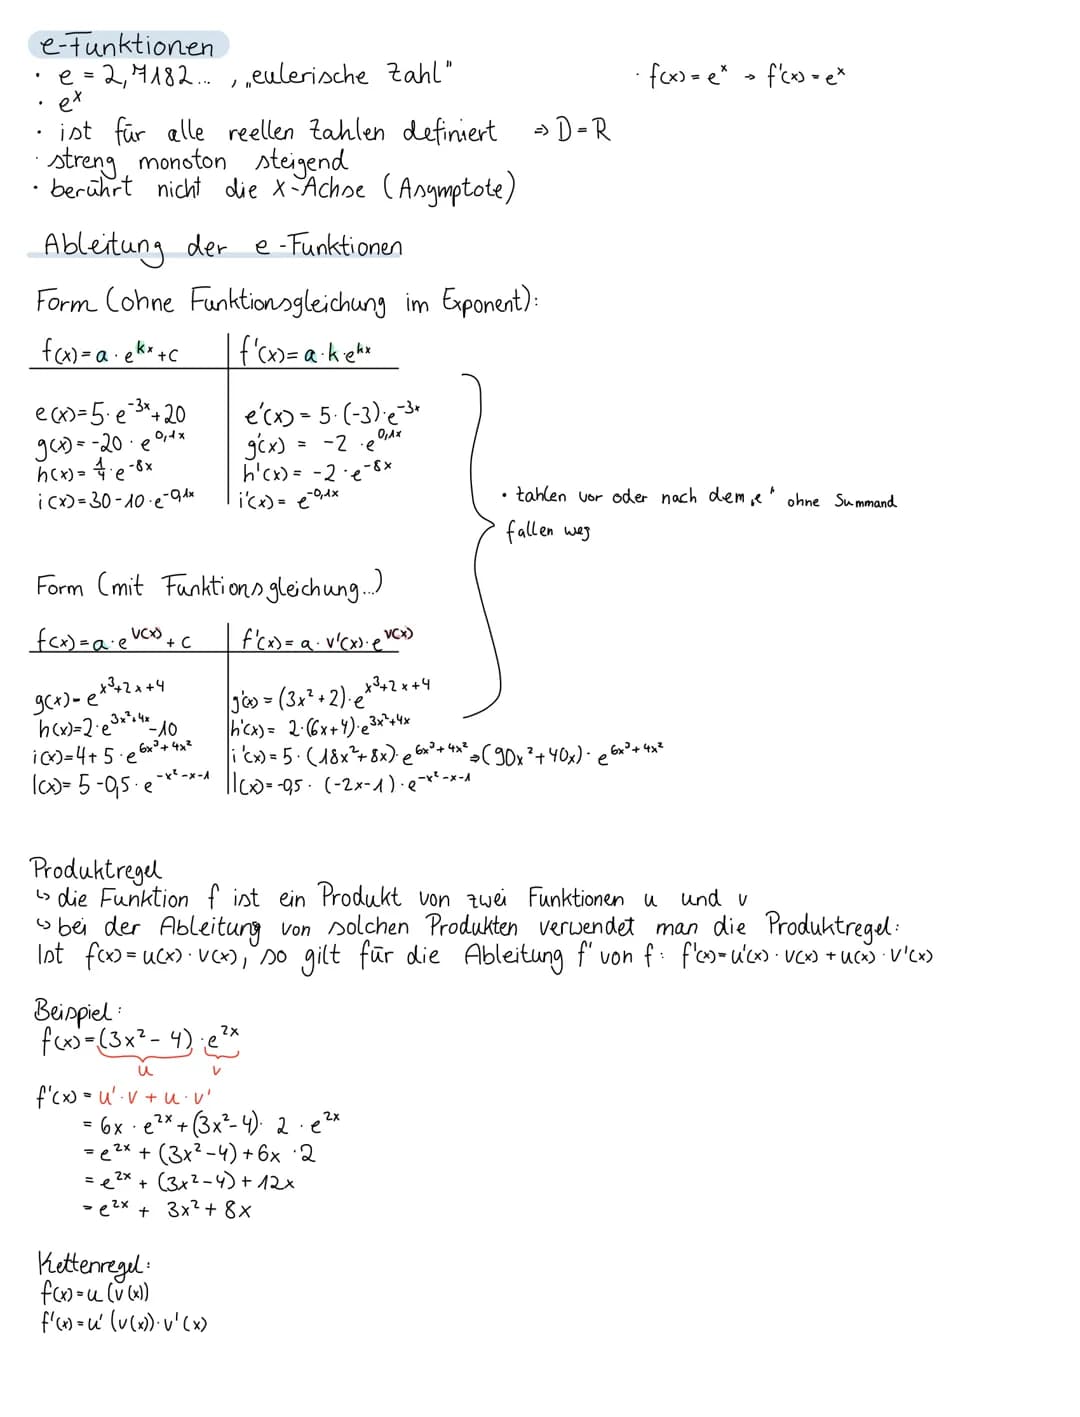 e-Funktionen
· e = 2,7182... , „eulerische Zahl"
· f(x) = eˣ → f'(x) = eˣ
· eˣ
· ist für alle reellen Zahlen definiert ⇒ D = R
· streng monoton steigend
· berührt nicht die X-Achse (Asymptote)
Ableitung der e-Funktionen
Form (ohne Funktionsgleichung im Exponent):
f(x) = a · e^kx + c | f'(x) = a · k · e^kx
e(x) = 5 · e^-3x + 20 | e'(x) = 5 · (-3) · e^-3x
g(x) = -20 · e^0,1x | g'(x) = -2 · e^0,1x
h(x) = 1/4 · e^-8x | h'(x) = -2 · e^-8x
i(x) = 30 - 10 · e^-0,1x | i'(x) = e^-0,1x
· Zahlen vor oder nach dem „e" ohne Summand
fallen weg
Form (mit Funktionsgleichung...)
f(x) = a · e^v(x) + c | f'(x) = a · v'(x) · e^v(x)
g(x) = e^x³+2x+4 | g'(x) = (3x² + 2) · e^x³+2x+4
h(x) = 2 · e^3x²+4x - 10 | h'(x) = 2 · (6x + 4) · e^3x²+4x
i(x) = 4 + 5 · e^6x³+4x² | i'(x) = 5 · (18x² + 8x) · e^6x³+4x² ⇒ (90x² + 40x) · e^6x³+4x²
l(x) = 5 - 0,5 · e^-x²-x-1 | l(x) = -0,5 · (-2x - 1) · e^-x²-x-1
Produktregel
↳ die Funktion f ist ein Produkt von zwei Funktionen u und v
↳ bei der Ableitung von solchen Produkten verwendet man die Produktregel:
Ist f(x) = u(x) · v(x), so gilt für die Ableitung f' von f: f'(x) = u'(x) · v(x) + u(x) · v'(x)
Beispiel:
f(x) = (3x² - 4) · e^2x
u v
f'(x) = u' · v + u · v'
= 6x · e^2x + (3x² - 4) · 2 · e^2x
= e^2x + (3x² - 4) + 6x · 2
= e^2x + (3x² - 4) + 12x
= e^2x + 3x² + 8x
Kettenregel:
f(x) = u (v(x))
f'(x) = u' (v(x)) · v'(x)